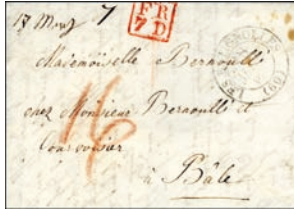 17 Mars 7
FR
7 D
Mademoiselle Bernoulli
chez Monsieur Bernoulli et
Courvoisier
à Bâle
16
(60)